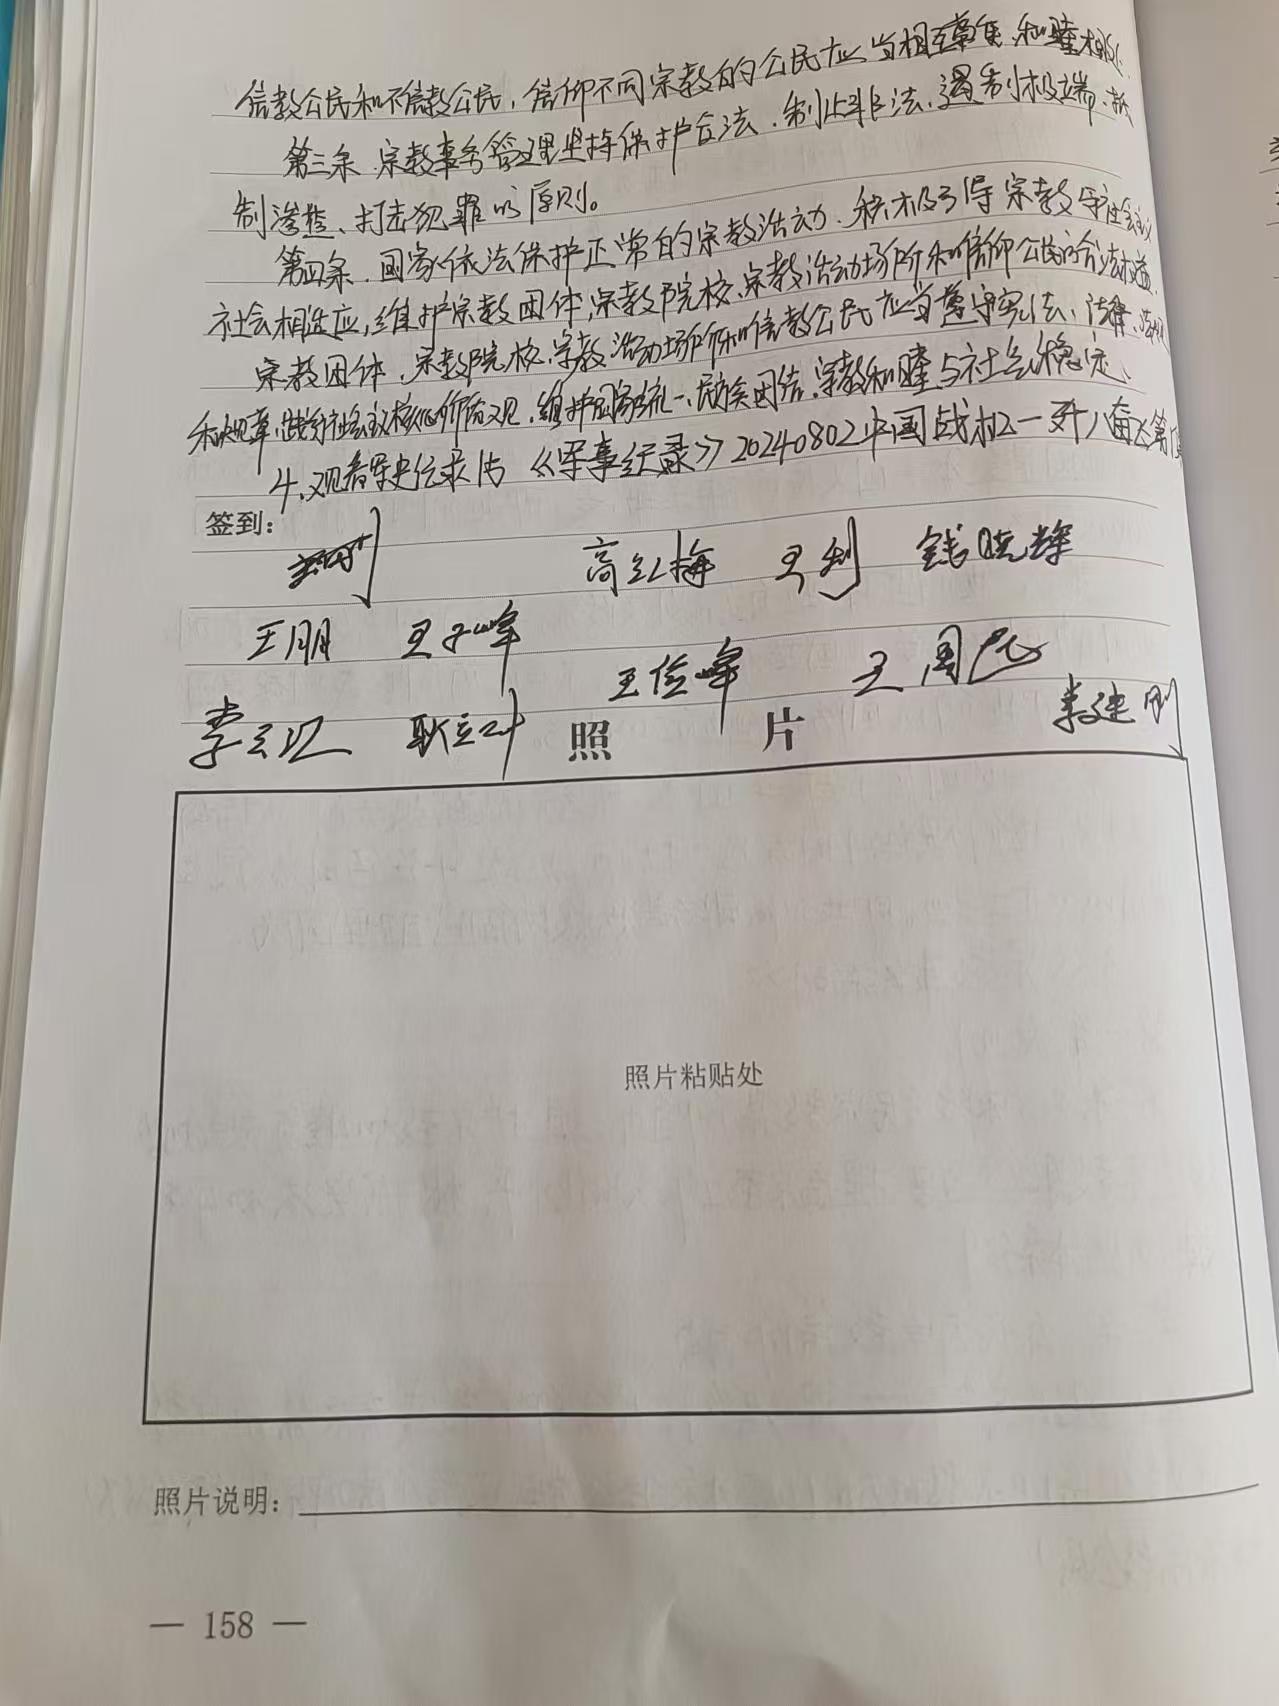 信教公民和不信教公民、信仰不同宗教的公民应当相互尊重、和睦相处。
第三条、宗教事务管理坚持保护合法、制止非法、遏制极端、抵
制渗透、打击犯罪的原则。
第四条、国家依法保护正常的宗教活动、积极引导宗教与社会主义
社会相适应,维护宗教团体、宗教院校、宗教活动场所和信仰公民的合法权益.
宗教团体、宗教院校、宗教活动场所和信教公民应当遵守宪法、法律、法规
和规章,践行社会主义核心价值观,维护国家统一、民族团结、宗教和睦与社会稳定、
4、观看军史纪录片《军事纪录》20240802中国战机—歼八奋飞第
签到:
高红梅 王利 钱晓辉
王朋 王子峰
王俊峰 王周
李 耿立叶 李建刚
照 片
照片粘贴处
照片说明:
— 158 —